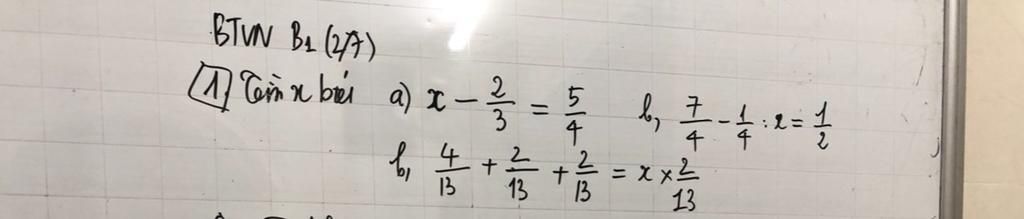 BTVN B1 (2/7)
1 Tìm x biết a) x - 2/3 = 5/4 b, 7/4 - 1/4 : x = 1/2
b, 4/13 + 2/13 + 2/13 = x × 2/13